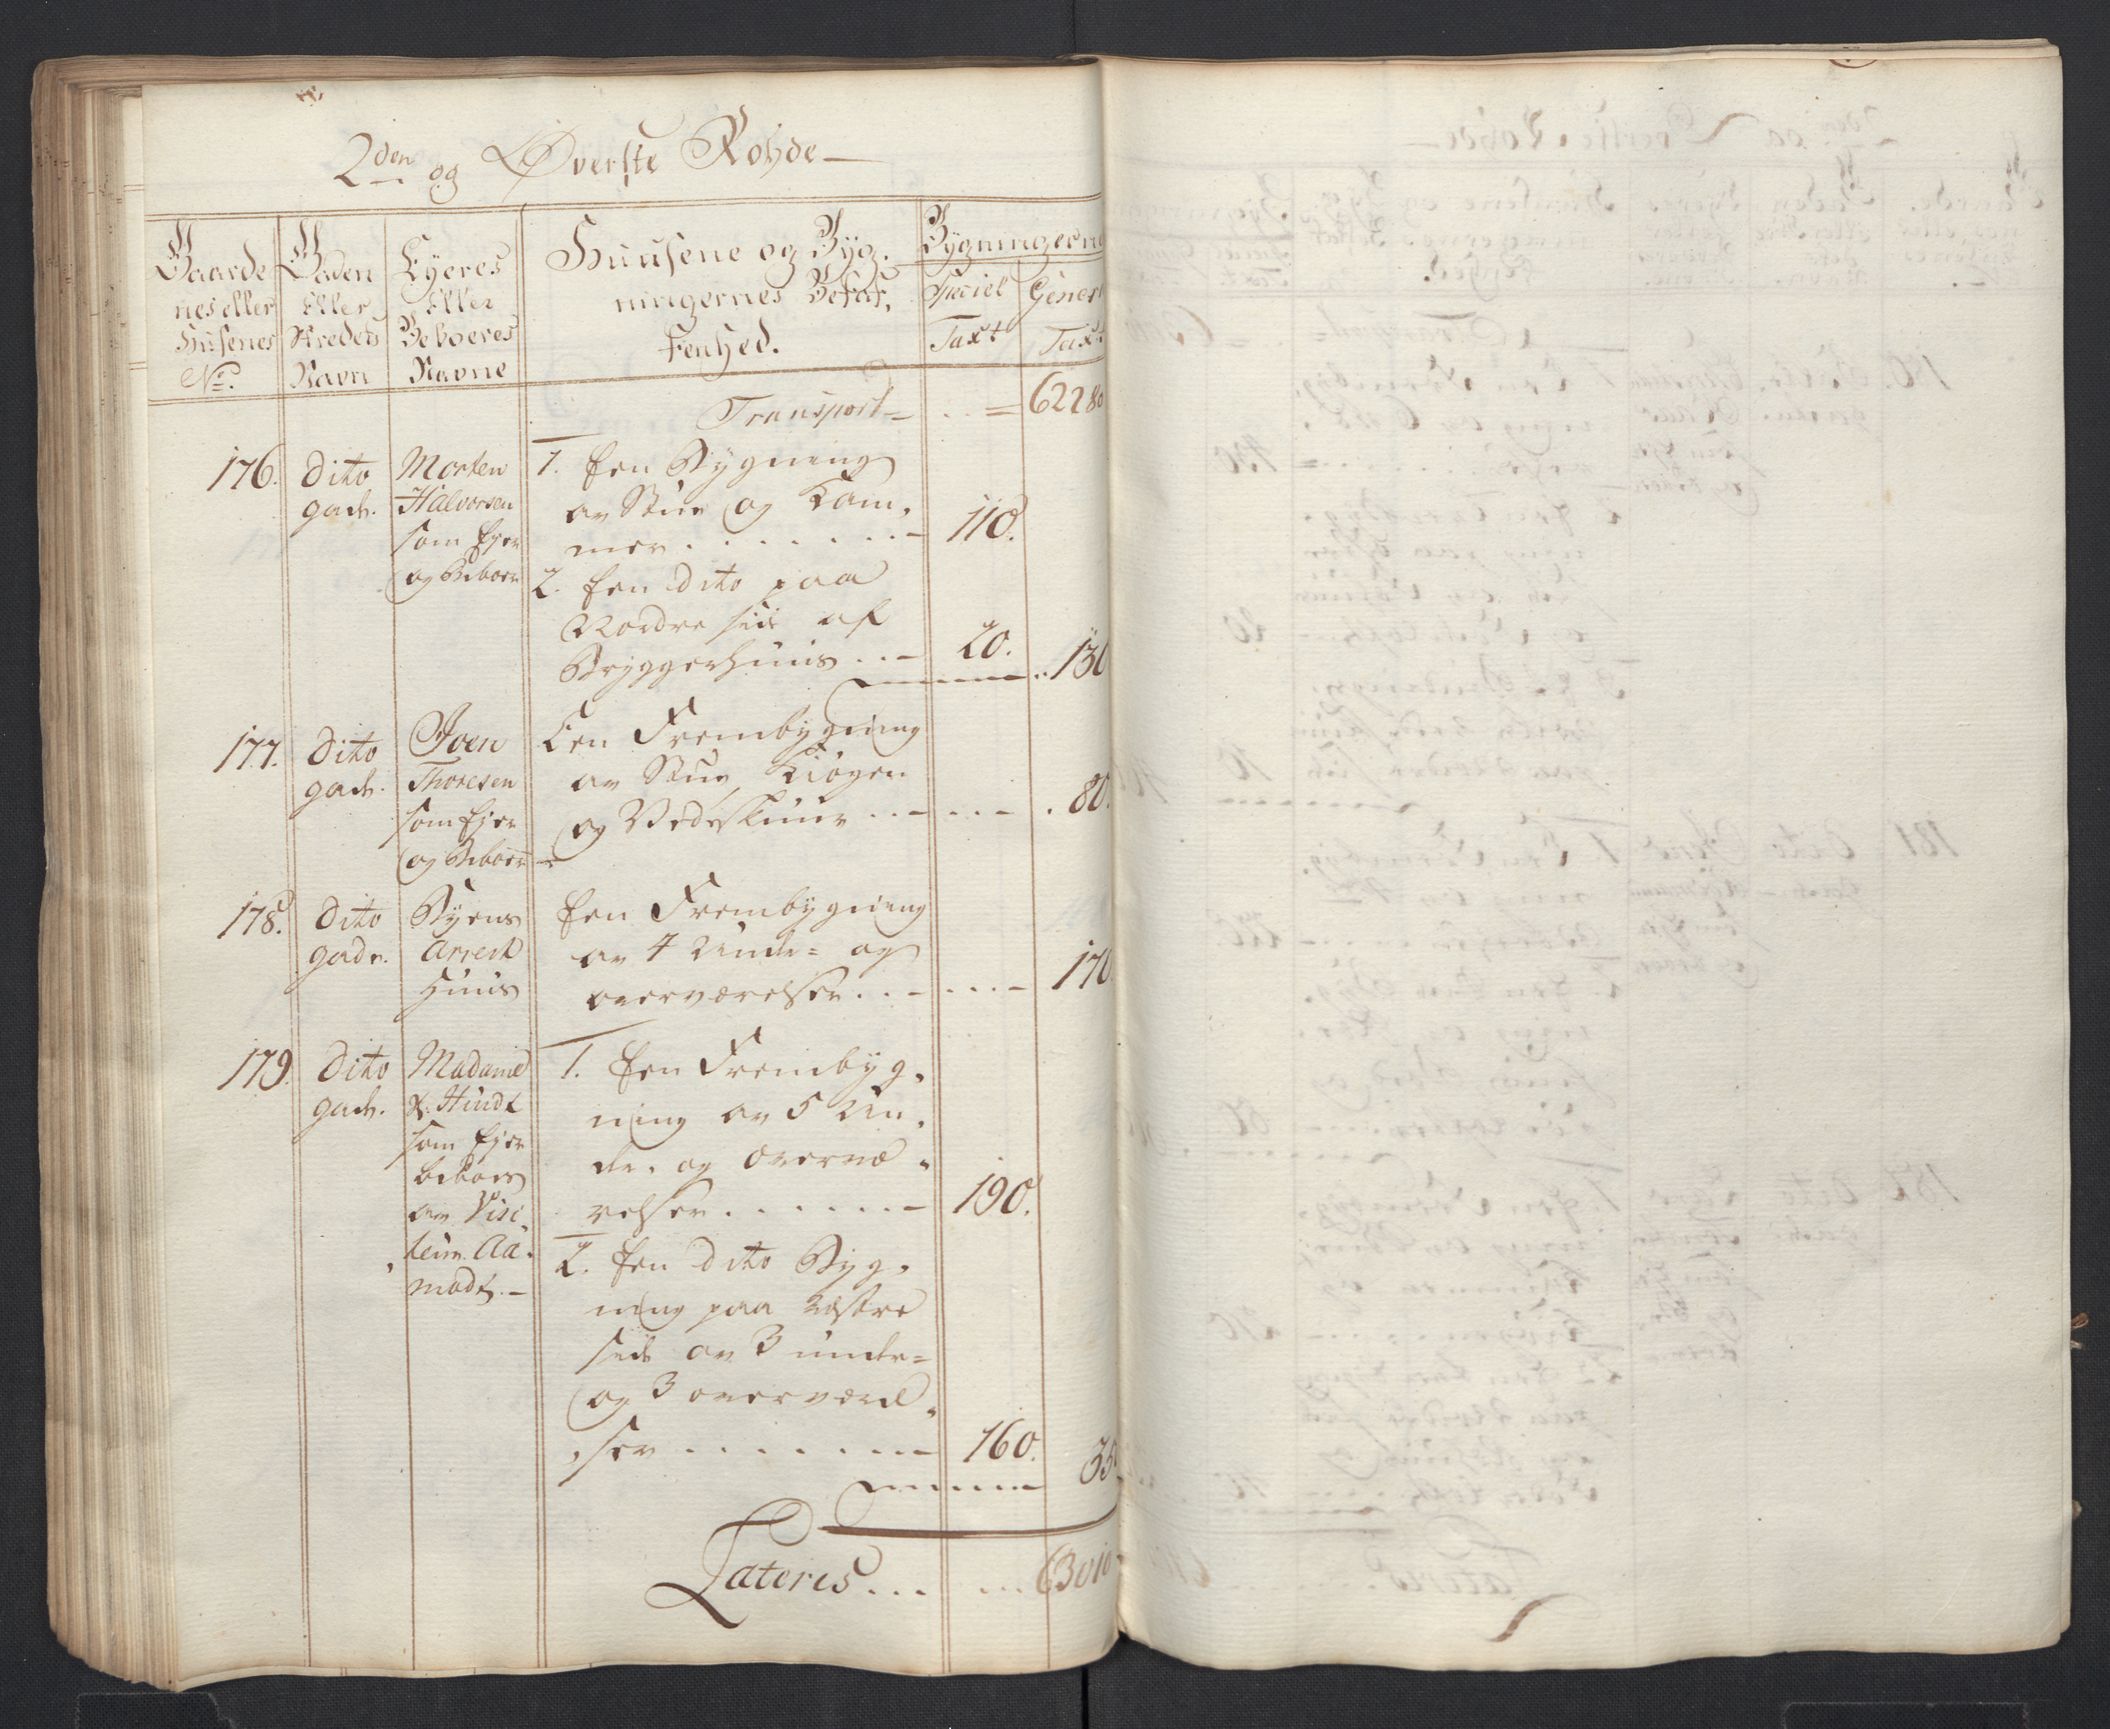 2den og Øverste Rohde
Gaarde
nes eller
Husenes
No.
Gaden
Eller
Stredets
Navn
Eyeres
Eller
Beboeres
Navne
Huusene og Byg,
ningernes Beskaf,
fenhed.
Bygningerne
Speciel
Taxt
General
Taxt
Transport .. = 62280
176. Dito
gade.
Morten
Halvorsen
som Ejer
og Beboer
1. Een Bygning
av Stue og Kam,
mer . . . . . . . – 110.
2. Een dito paa
Nordre side af
Bryggerhuus . . – 20. .. 130
177. Dito
gade.
Joen
Thoresen
som Ejer
og Beboer –
Een Frembygning
av Stue, Kiøgen
og Vedeskuur . . – . . – . 80.
178. Dito
gade.
Byens
Arrest
Huus
Een Frembygning
av 4 Under= og
overværelser . . – . . . – 170.
179. Dito
gade.
Madame
Hindt
som Ejer
beboes
av Visi,
teur Aa,
modt. –
1. Een Frembyg,
ning av 5 Un,
der, og overvæ,
relser . . . . . . – 190.
2. Een dito Byg,
ning paa Vestre
side av 3 under=
og 3 overværel,
ser . . . . . . . – 160. 35
Lateris . . . . . . 63010